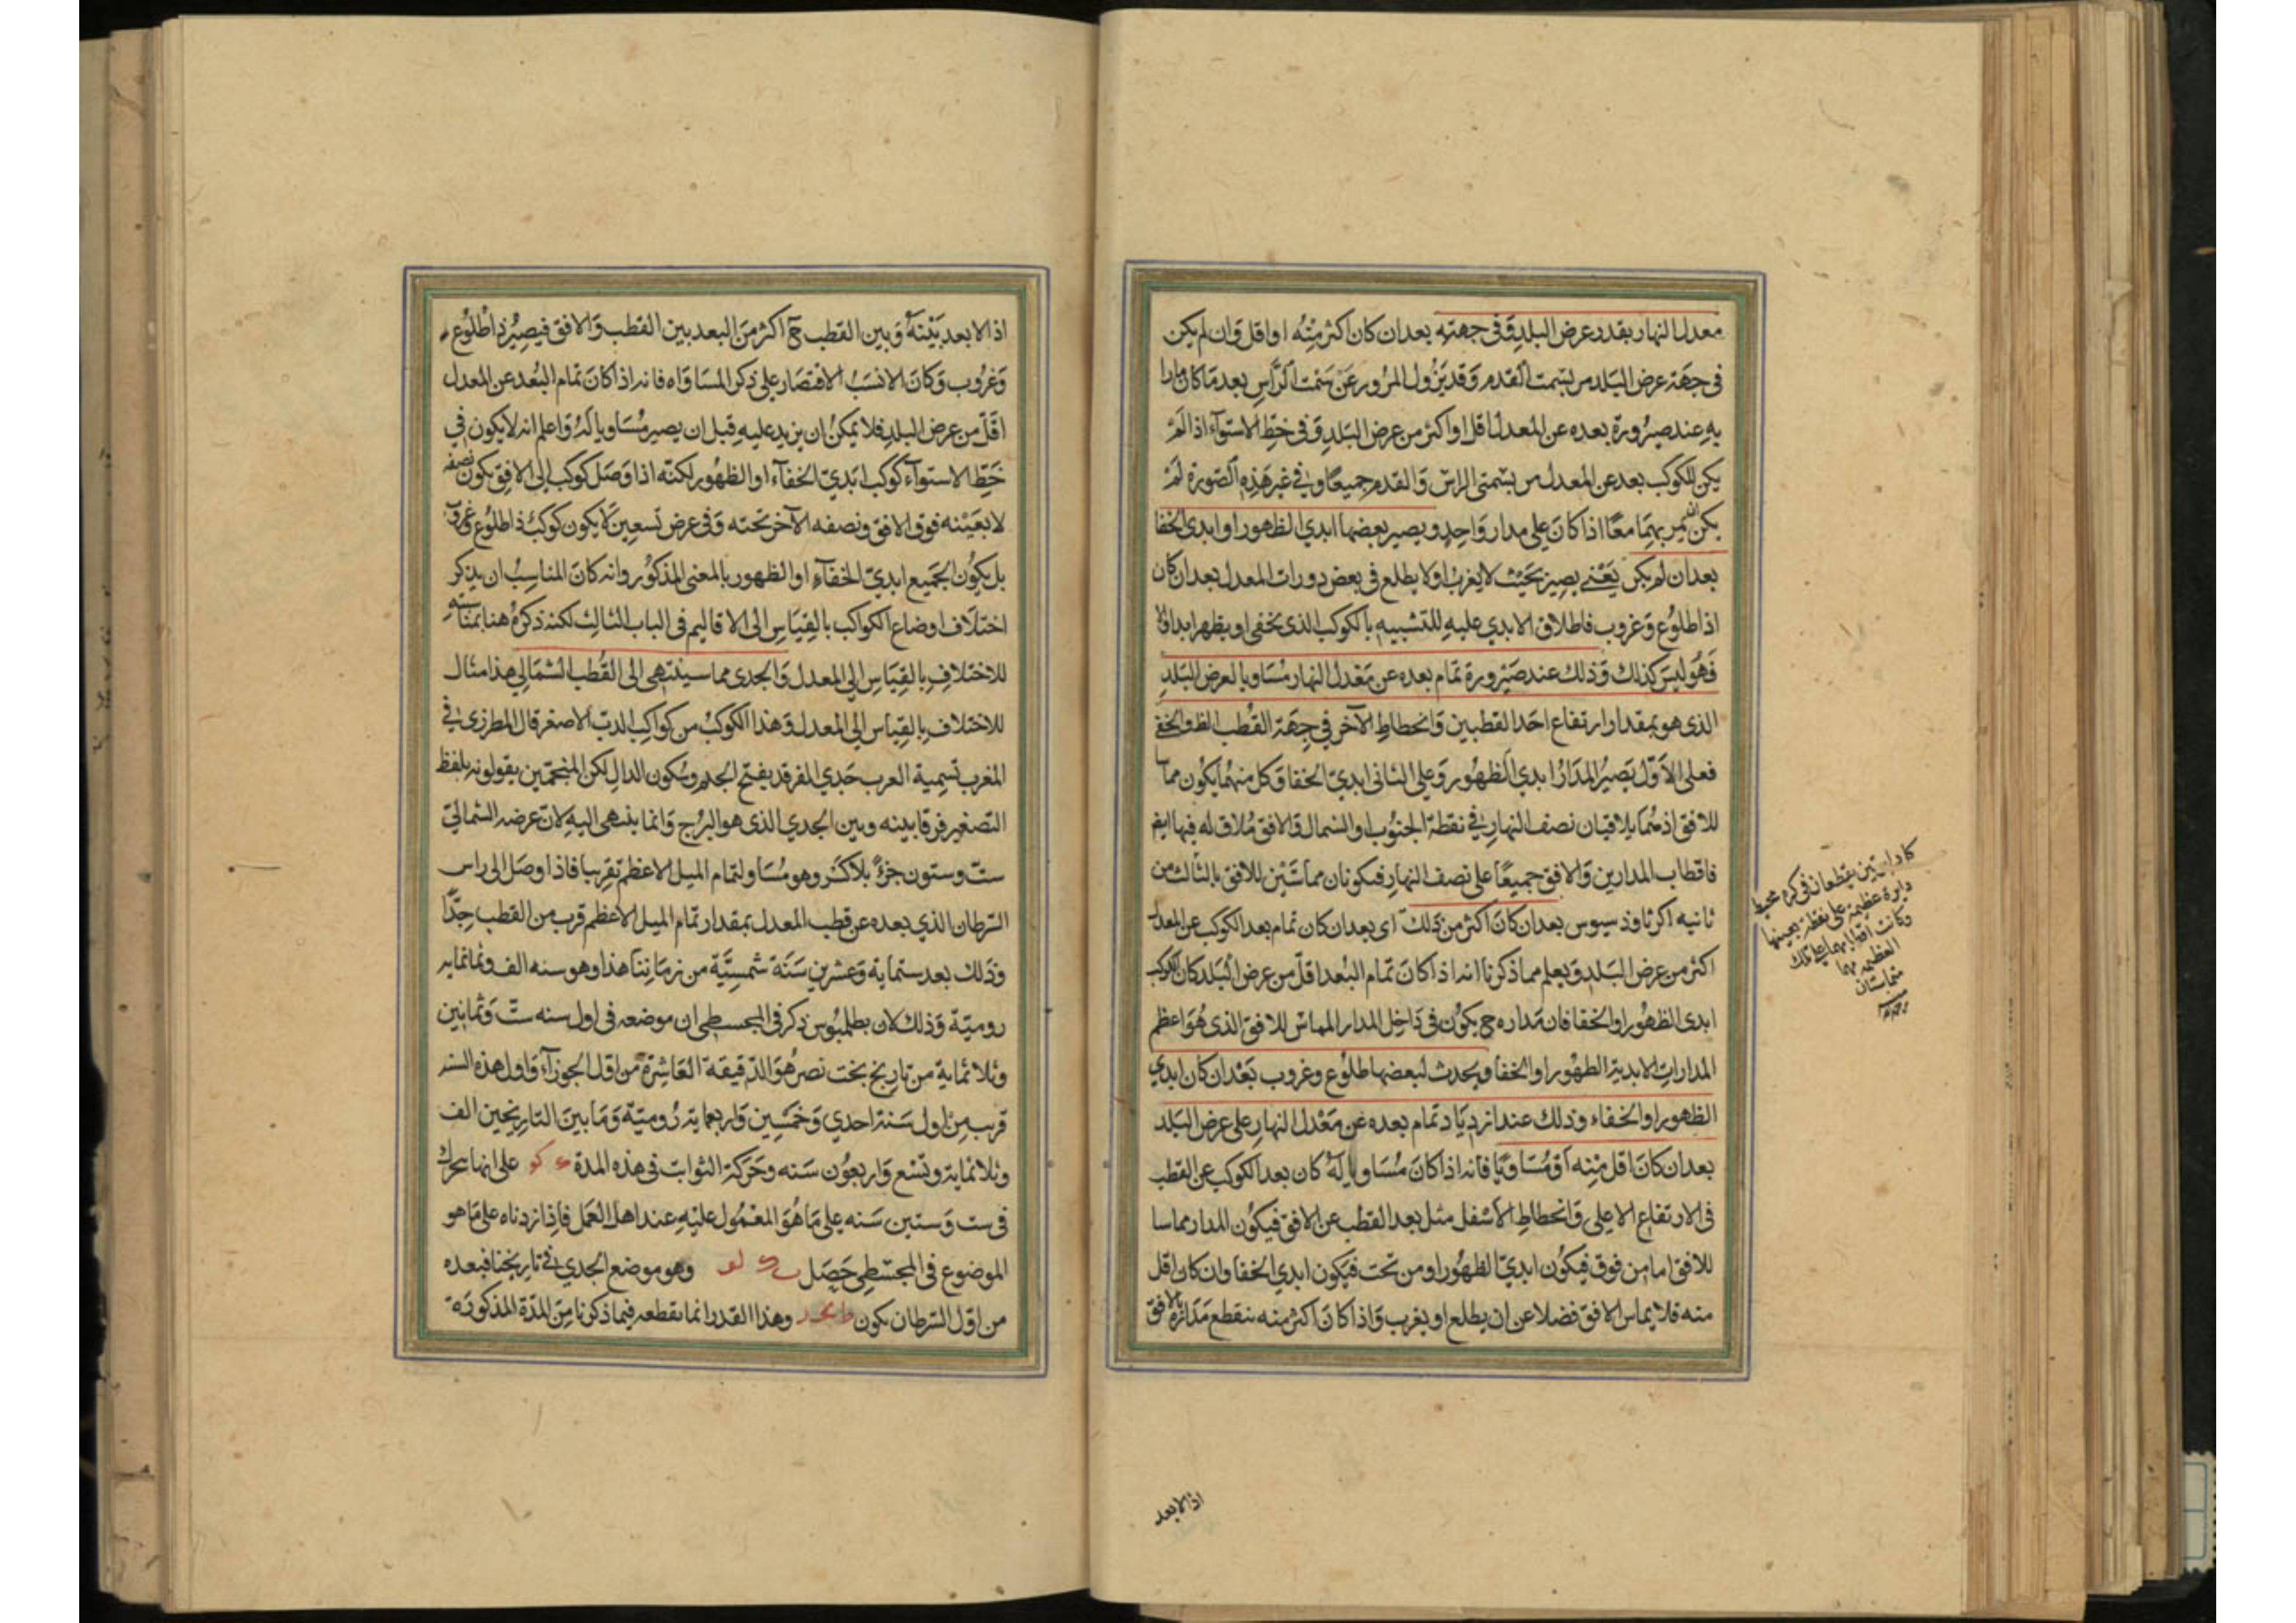 معدل النهار بقدر عرض البلد وَفى جهته بعد ان كان اكثر مِنْه او اقل وَان لم يكن
فى جهَة عرض البَلد مر بسمت القدم وَقد يَزُول المرُور عَن سَمْت الرَّأسِ بعد مَا كان مارا
بهِ عند صيرُورة بعده عن المعدل اقل او اكثر من عرض البَلدِ وَفى خطِّ الاستوآء اذا لَمْ
يكن للكوكب بعد عن المعدل مر بسْمتى الراس وَالقدم جميعًا وفي غير هَذِهِ الصّورة لَمْ
يكن يمر بهِمَا معًا اذا كانَ عَلى مدار وَاحدٍ ويصير بعضها ابدي الظهور او ابدى الخفا
بعد ان لم يكن يَعْني يصِير بحَيْث لا يغربُ او لا يطلع فى بعض دورات المعدل بعد ان كان
ذا طلوُع وَغروب فاطلاق الابدي عليهِ للتشبيهِ بالكوكب الذى يخفى او يظهر ابدا وَالا
فَهُوَ ليسَ كذلك وَذلك عند صَيْرورة تمام بعده عن مَعْدل النهار مُسَاويا لعرض البَلدِ
الذى هو بمقدار ارتفاع احَد القطبين وَانحطاطِ الآخر في جِهَة القُطب الظ والخفى
فعلى الاَوّل يَصيُر المَدَارُ ابدي الظهُور وَعلى الثانى ابديّ الخفا وَكل منهُما يكوُن مماسا
للافق اذ هُما يلاقيان نصف النهارِ في نقطة الجنوُب او الشمال وَالافق مُلاق له فيها ايض
فاقطاب المدارين وَالافق جميعًا على نصف النهارِ فيكونان مماسَّيْن للافق بالثالث من
ثانيه اكر ثاوذ سيوس بعد ان كانَ اكثر من ذلك اى بعد ان كان تمام بعد الكوكب عن المعدل
اكثر من عرض البَلد وَيعلم مما ذكرنا انه اذا كانَ تمام البُعد اقلّ من عرض البَلد كان الكوكب
ابدى الظهُور او الخفا فان مَداره ح يكوُن فى دَاخِل المدار المماسّ للافق الذى هُوَ اعظم
المدارات الابديّة الظهُور او الخفا ويحدث لبعضها طلوُع وغروب بَعْد ان كان ابدي
الظهور او الخفاء وذلك عند ازدِيَاد تمَام بعده عن مَعْدل النهارِ على عرض البَلد
بعد ان كانَ اقل مِنْه اَوْ مُسَاويًا فانه اذا كانَ مُسَاويا لَهُ كان بعد الكوكب عن القطب
فى الارتفاع الاعلى وَانحطاطِ الاسْفل مثل بعد القطب عن الافق فيكوُن المدار مماسا
للافق اما من فوق فيكوُن ابديّ الظهُور او من تحت فيكون ابدي الخفا وان كان اقل
منه فلا يماس الافق فضلا عن ان يطلع او يغرب وَاذا كانَ اكثر منه ينقطع مَدَارُه بالافق
كل دايرتين يقطعان فى كرة محيط
دايرة عظيمة على نقطة بعينها
وكانت اقطابهما على تلك
العظيمة فهما
متماستان
اذ الابعد
اذ الابعد بَيْنَهُ وَبين القطب ح اكثر مِنَ البعد بين القطب وَالافق فيصيُر ذا طلوُع
وَغرُوب وَكانَ الانسَبُ الاقتصَار على ذكر المسَاوَاه فانه اذا كانَ تمام البُعد عن المعدل
اقَلّ من عرض البلدِ فلا يمكنُ ان يزيد عليهِ قبل ان يصير مُسَاويا لَهُ وَاعلم انه لا يكون في
خطِّ الاستوآء كوكب ابَديّ الخفآء او الظهُور لكنّه اذا وَصَل كوكب إلى الافق يكون نصفه
لا بعَيْنه فوق الافق ونصفه الآخر تحته وَفى عرض تسعين لا يكون كوكبُ ذا طلوُع وغروب
بل يكوُن الجَميع ابديّ الخفآء او الظهور بالمعنى المذكوُر وانه كانَ المناسبُ ان يذكر
اختلاف اوضاع الكواكب بالقِيَاسِ الى الاقاليم فى الباب الثالثِ لكنه ذكرهُ هنا بمناسبته
للاختلافِ بالقِيَاسِ الى المعدل وَالجدى مما سينتهى الى القُطب الشمَالي هذا مثال
للاختلافِ بالقِيَاسِ الى المعدل وَهَذا الكوكبُ من كواكب الدبّ الاصغر قال المطرزى في
المغرب تسمِية العرب جَدي الفرقد بفتح الجيم وسُكون الدالِ لكن المنجّمين يقولونه بلفظ
التصغير فرقا بينه وبين الجدي الذى هو البرُج وَانما ينتهى اليهِ لانّ عرضه الشماليّ
ستّ وستون جزءٌ بلا كسْر وهو مُسَاو لتمام الميل الاعظم تقريبا فاذا وصَل الى راس
السّرطان الذي بعده عن قطب المعدل بمقدار تمام الميل الاعظم قرب من القطب جِدًّا
وَذلك بعد ستماية وَعشرين سَنَة شمسِيَّة من زمَاننا هذا وهو سنه الف وثمانمايه
روميّة وَذلك لان بطلميُوس ذكر فى المجسطى ان موضعه فى اول سنه ستّ وَثمانين
وثلاثماية من تاريخ بخت نصر هُوَ الدّقيقة العَاشِرَة من اوّل الجوزآءِ وَاول هذه السنه
قرب مِنْ اول سَنة احدي وَخمسِين وَاربعماية رُوميّة وَمَا بينَ التاريخين الف
وثلاثماية وتسْع وَاربعوُن سَنه وحَرَكة الثوابت فى هذه المدة ى كو على انها تتحرك
فى ست وَستين سَنه على مَا هُوَ المعْمُول عليْهِ عند اهل العمَل فاِذا زدناه على مَا هو
الموضوع فى المجسْطِى حَصَل وهو موضع الجدي فى تاريخنا فبعده
من اوّل السّرطان يكون وهذا القدر انما يقطعه فيما ذكرنا مِنَ المدّة المذكورَة